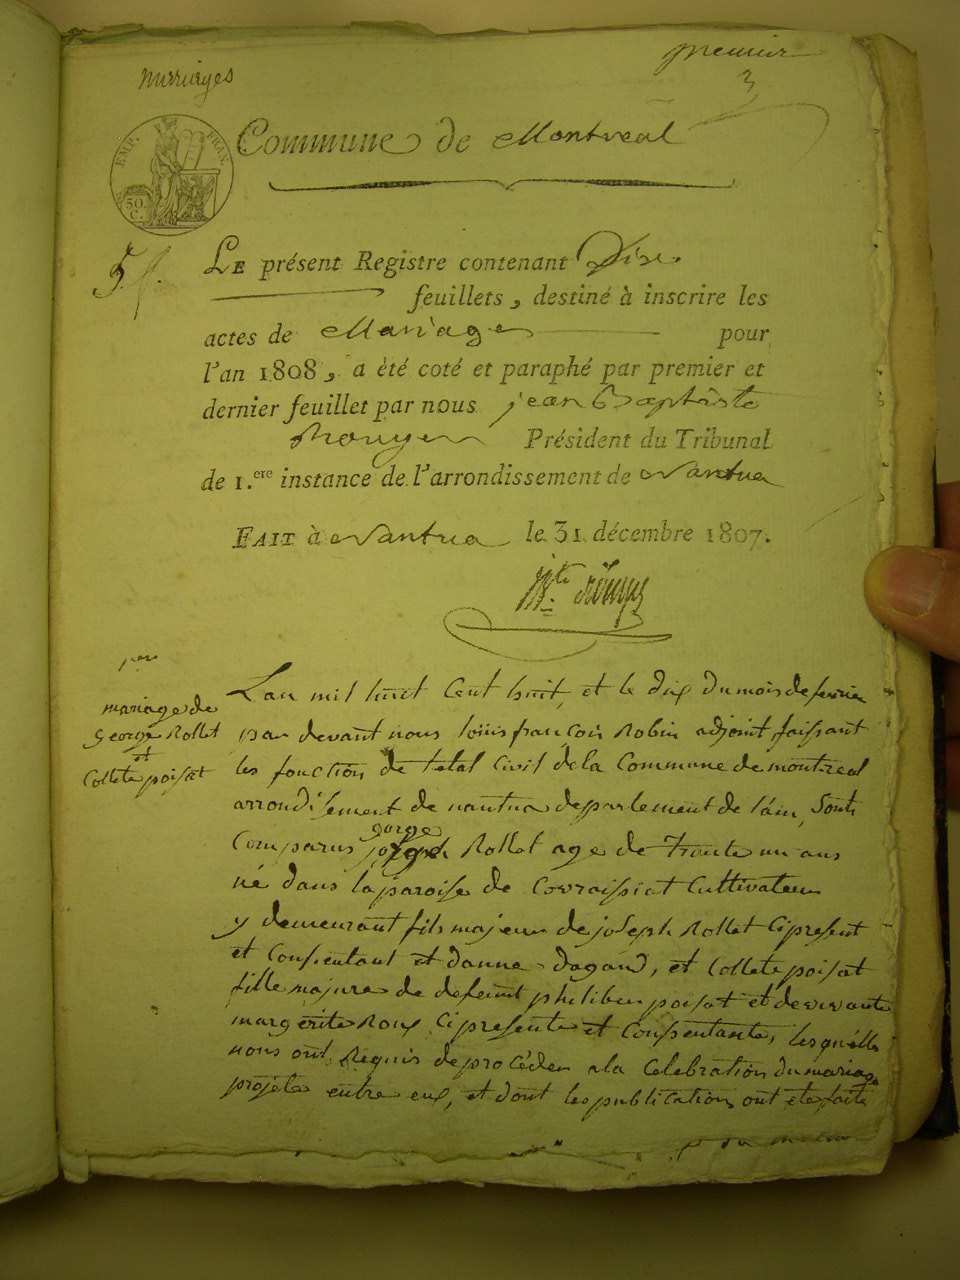 Marriages
premier
3
EMP. FRAN.
50. C.
Commune de Montréal
5. f.
LE présent Registre contenant Dix
feuillets, destiné à inscrire les
actes de Mariage pour
l'an 1808, a été coté et paraphé par premier et
dernier feuillet par nous jean Baptiste
Président du Tribunal
de 1.ere instance de l'arrondissement de Nantua
FAIT à Nantua le 31 décembre 1807.
1er
mariage de
george Rollet
et
Collete poisat
Lan mil huit Cent huit, et le dix du mois de fevrier
par devant nous louis françois Robin adjoint faissant
les fonction de letat Civil de la Commune de montreal
arrondisement de nantua departement de lain, Sont
gorge
Comparus Rollet age de Trente un ans
né dans la paroise de Corraissiat Cultivateur
y demeurant fils majeur de joseph Rollet Ci present
et Consentant et danne dagand, et Collete poisat
fille majure de defeunt philiber poisat et de vivante
margerite Roux Ci presente et Consentante, lesquelle
nous ont Requis de proceder a la Celebration du mariage
projete entre eux, et dont les publication ont ete faite